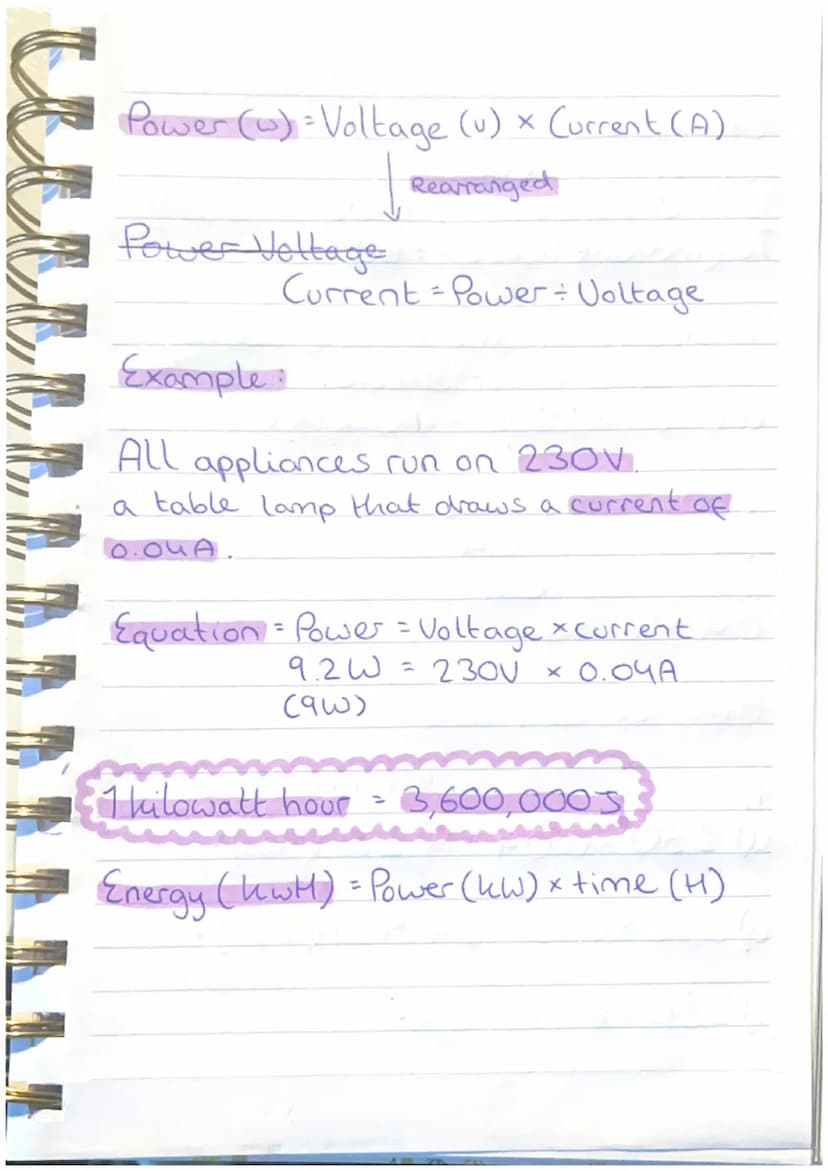 Power (w) = Voltage (v) × Current (A)
Rearranged
Power = Voltage
Current = Power ÷ Voltage
Example:
All appliances run on 230V.
a table lamp that draws a current of
0.04A.
Equation = Power = Voltage × current
9.2W = 230V × 0.04A
(9W)
1 kilowatt hour = 3,600,000J
Energy (kwH) = Power (kW) × time (H)